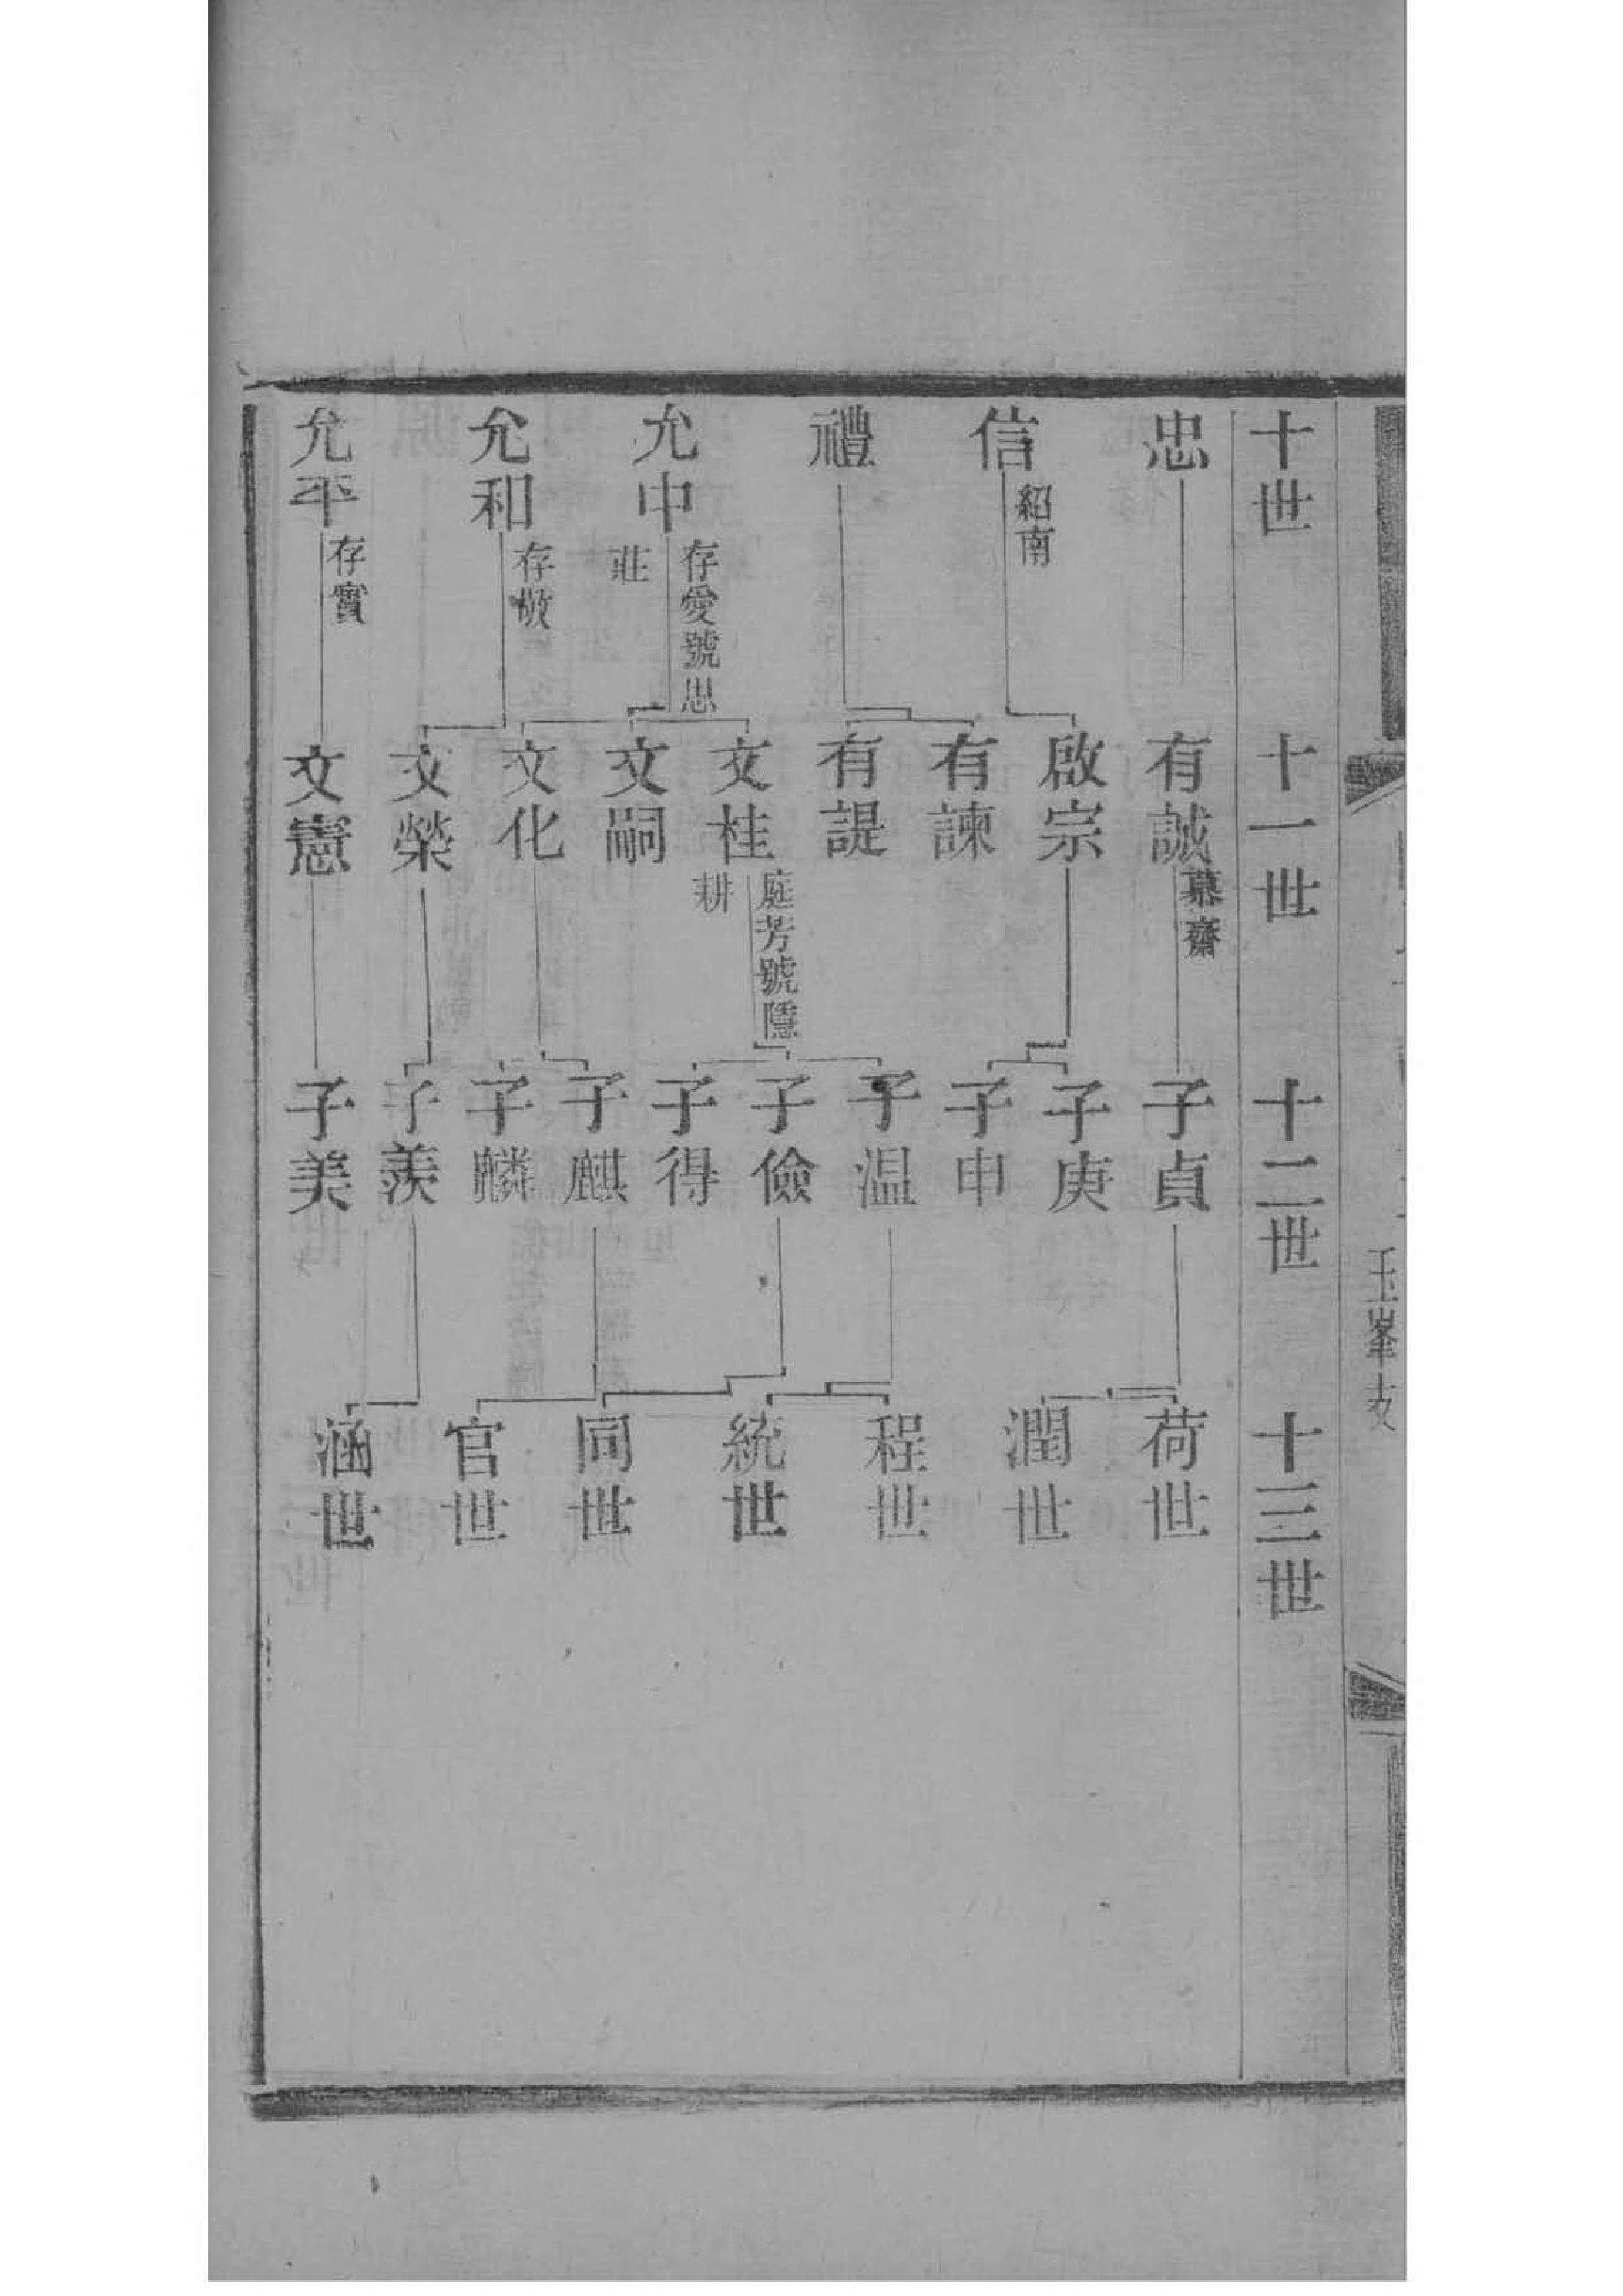 玉峯
十世
忠
信
紹南
禮
允中
存愛號思
莊
允和
存敬
允平
存實
十一世
有誠
慕齋
啟宗
有諫
有諟
文桂
庭芳號隱
耕
文嗣
文化
文榮
文憲
十二世
子貞
子庚
子申
子温
子儉
子得
子麒
子麟
子羨
子美
十三世
荷世
潤世
程世
統世
同世
官世
涵世